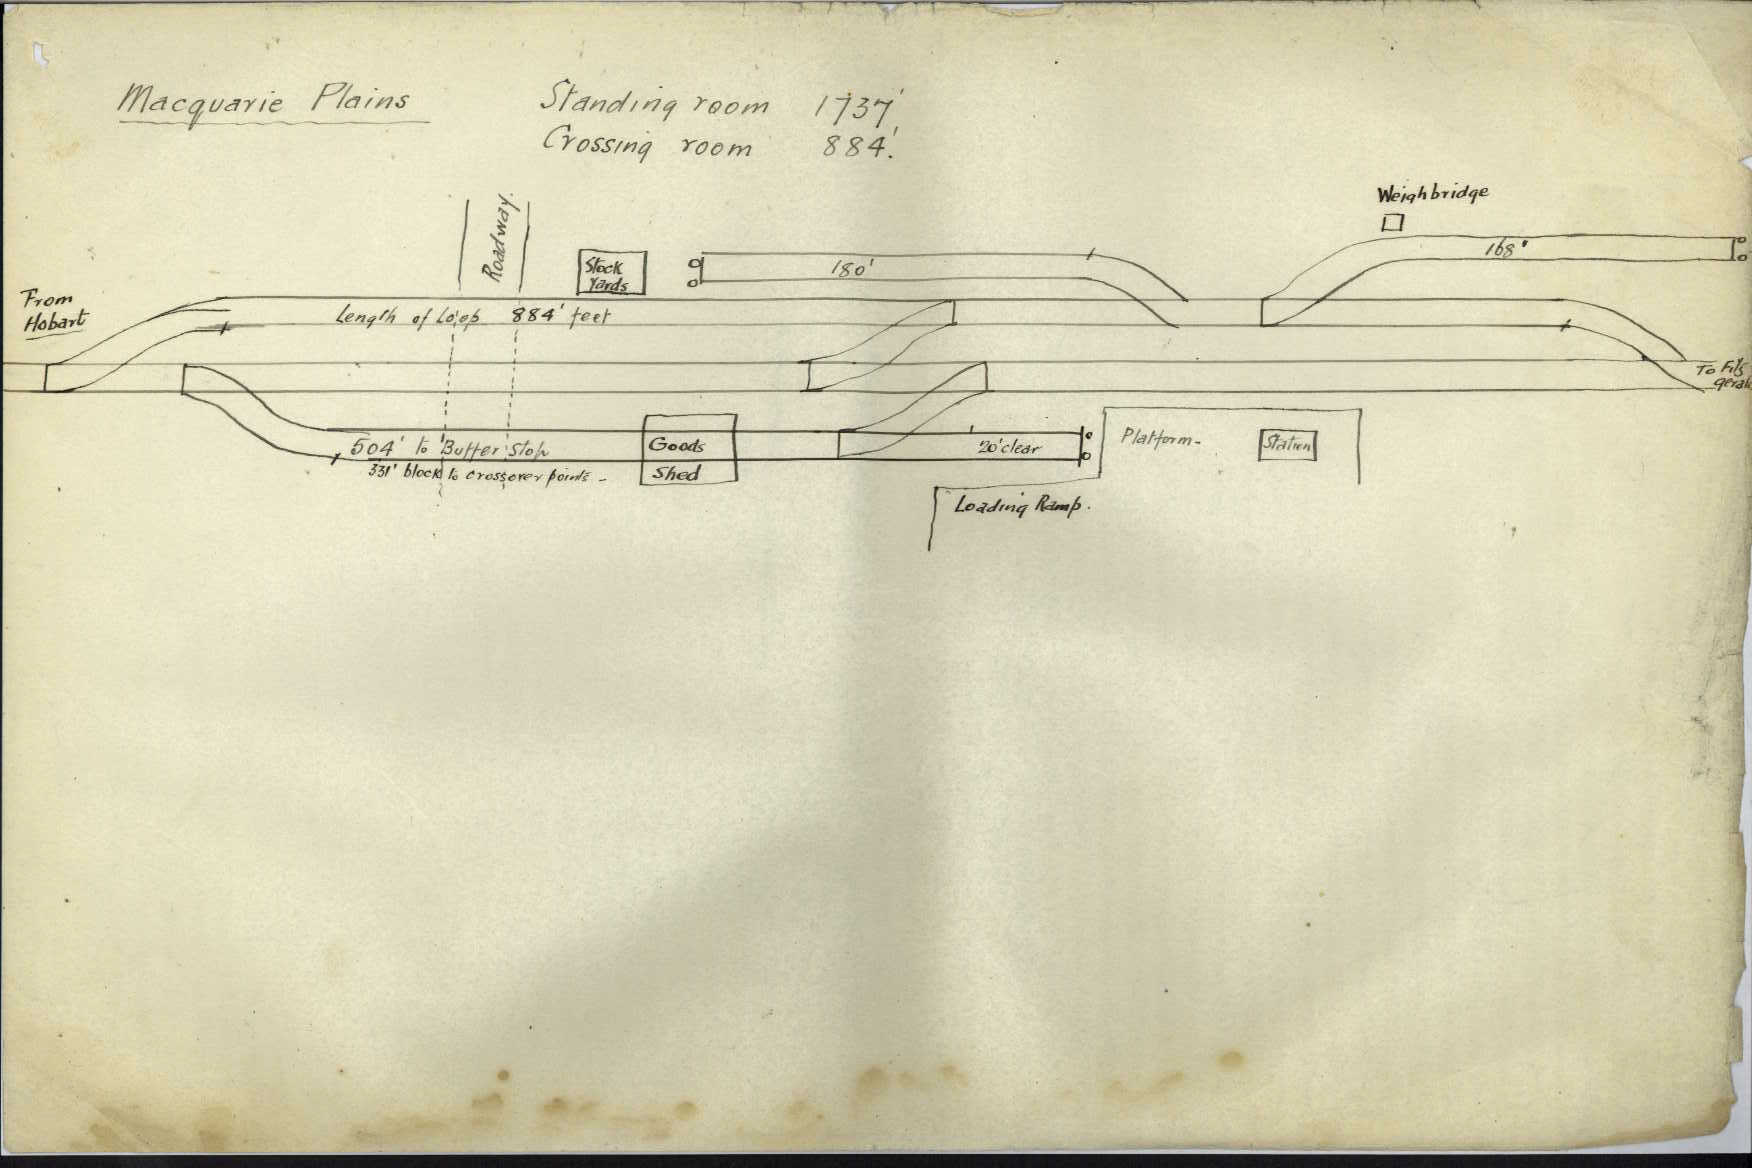 Macquarie Plains
Standing room 1737'
Crossing room 884'.
Weighbridge
Roadway.
Stock
Yards
180'
168'
From
Hobart
Length of Loop 884' feet
To Fitz
gerald
504' to Buffer Stop
331' block to crossover points -
Goods
Shed
20' clear
Platform -
Station
Loading Ramp.